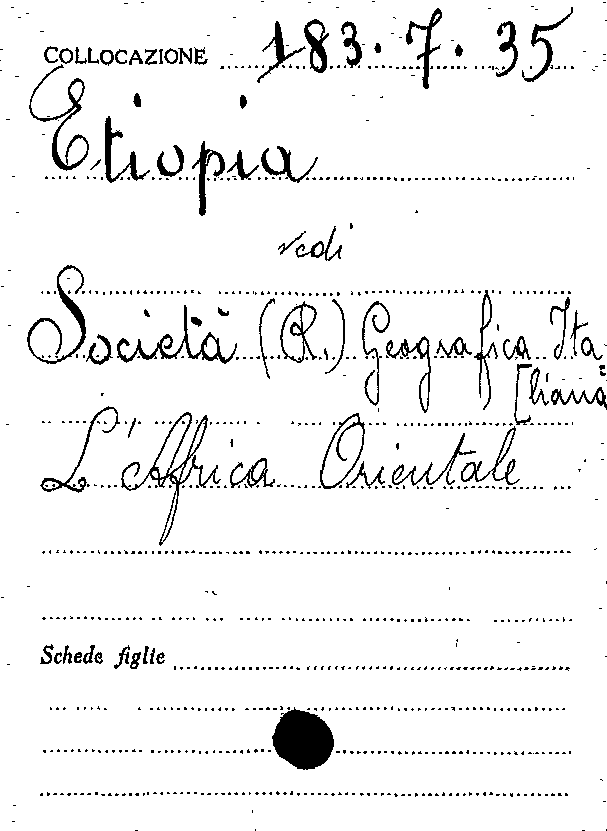 COLLOCAZIONE 183.7.35
Etiopia
vedi
Società (R.) Geografica Ita=
[liana
L'Africa Orientale
Schede figlie